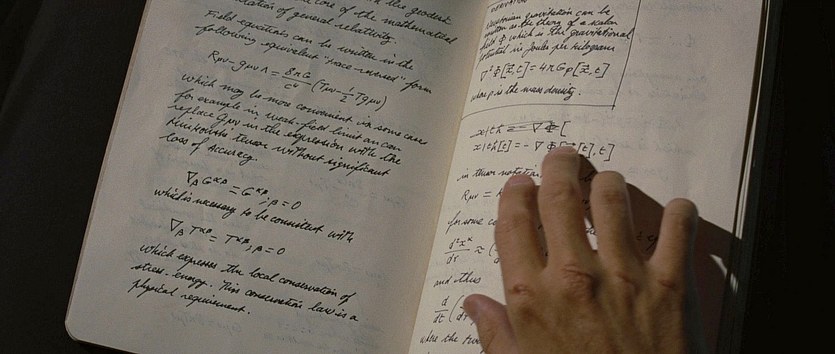 core of the mathematical
of general relativity.
Field equations can be written in the
following equivalent "trace-reversed" form
Rμν - gμν Λ = 8πG/c⁴ (Tμν - 1/2 T gμν)
which may be more convenient in some cases
for example in weak-field limit an can
replace gμν in the expression with the
Minkowski tensor without significant
loss of accuracy.
∇β G^αβ = G^αβ ;β = 0
which is necessary to be consistent with
∇β T^αβ = T^αβ ;β = 0
which expresses the local conservation of
stress-energy. This conservation law is a
physical requirement.
Newtonian gravitation can be
written as the theory of a scalar
field Φ which is the gravitational
potential in joules per kilogram
∇²Φ[x⃗,t] = 4πGρ[x⃗,t]
where ρ is the mass density.
[t] = - ∇ Φ
in tensor notation
Rμν =
for some
and thus
where the